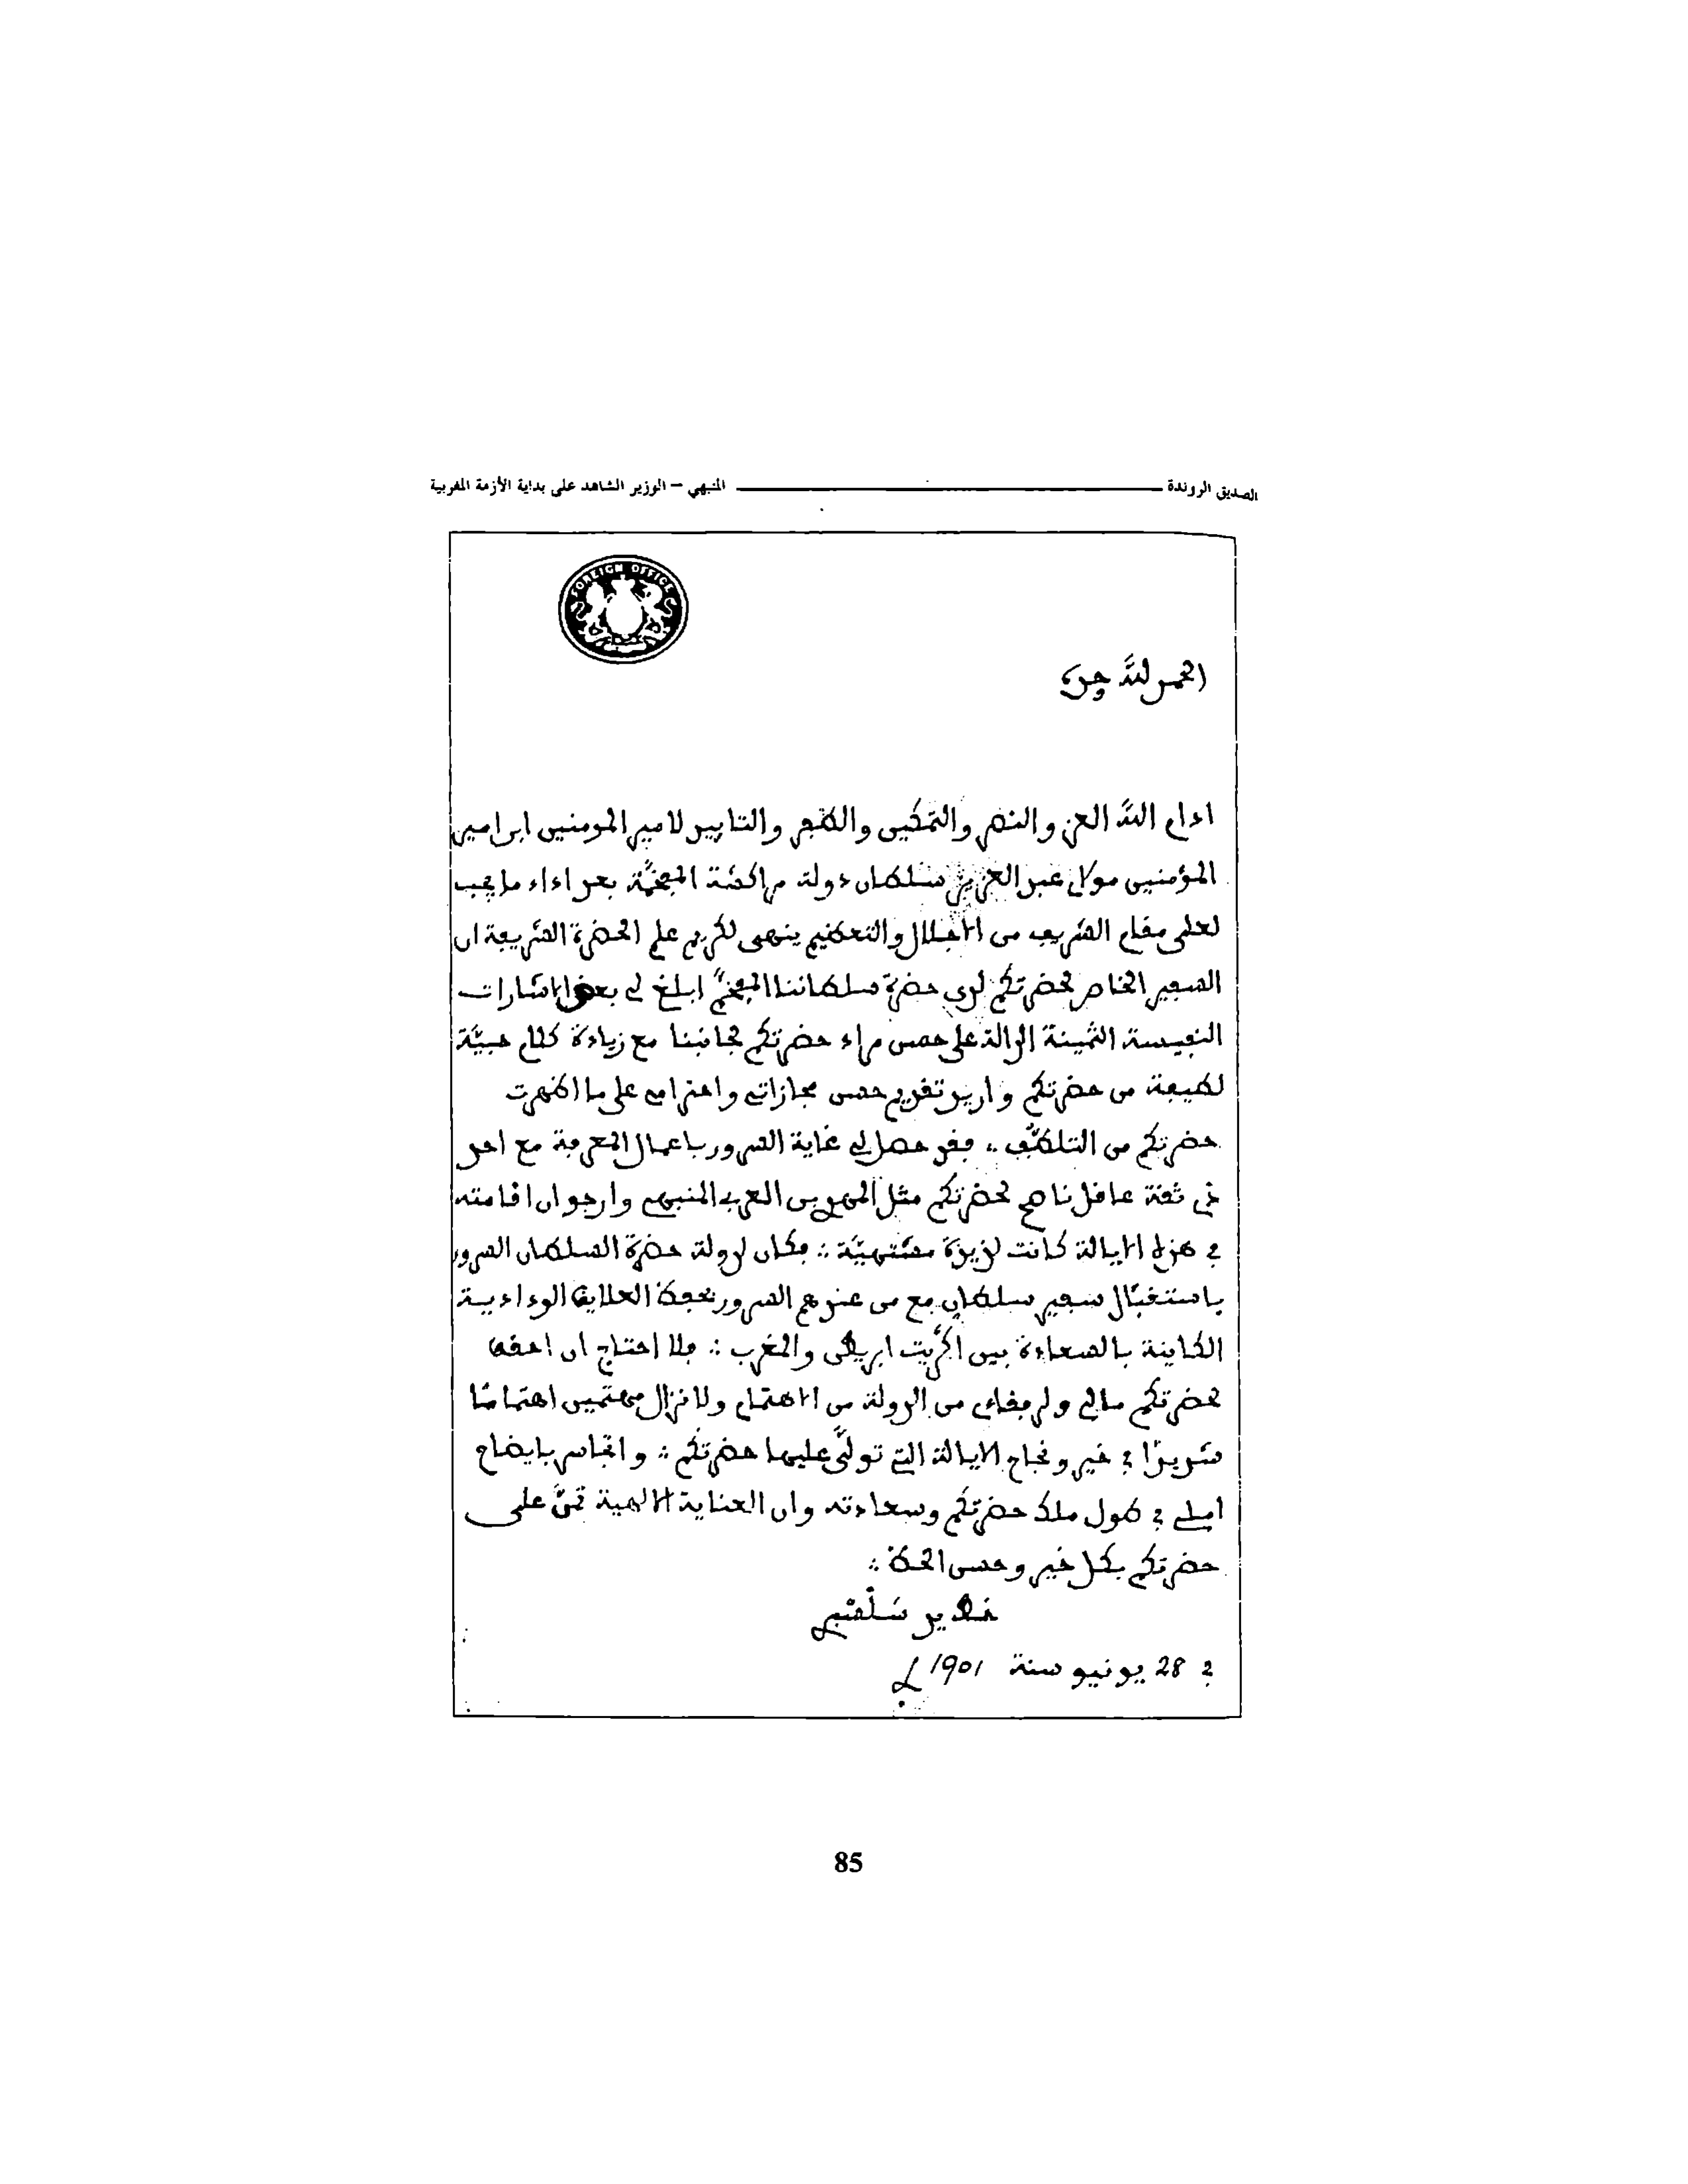 الصديق الروندة
المنبهي – الوزير الشاهد على بداية الأزمة المغربية
FOREIGN OFFICE
الحمد لله وحده
ادام الله العز والنصر والتمكين والظفر والتاييد لامير المومنين ابن امير
المؤمنين مولاي عبد العزيز سلطان دولة مراكشة المفخمة بعد اداء ما يجب
لعلى مقام الشريف من الاجلال والتعظيم ينهى لكريم علم الحضرة الشريفة ان
السفير الخاص لحضرتكم لدى حضرة سلطاننا المفخم ابلغ لي بعض الاشارات
النفيسة الثمينة الدالة على حسن مراد حضرتكم لجانبنا مع زيادة كلام حبية
لطيفة من حضرتكم واريد تقديم حسن مجازاتي واحترامي على ما اظهرت
حضرتكم من التلطف ∴ فقد حصل لي غاية السرور باعمال المعرفة مع احد
ذي ثقة عاقل ناصح لحضرتكم مثل المهدي بن العربي المنبهي وارجو ان اقامته
في هذه الايالة كانت لذيذة مشتهية ∴ فكان لدولة حضرة السلطان السرور
باستقبال سفير سلطان مع من عندهم السرور بحفظ العلايق الودادية
الكاينة بالسعادة بين اكريت ابريطن والمغرب ∴ فلا احتاج ان احقق
لحضرتكم مالي ولرفقاي من الدولة من الاهتمام ولا نزال مهتمين اهتماما
شديدًا في خير ونجاح الايالة التي تولى عليها حضرتكم ∴ واتجاسر بايضاح
املي في طول ملك حضرتكم وسعادته وان العناية الالهية تمنّ على
حضرتكم بكل خير وحسن الحظ ∴
خديم سَلْسْبري
في 28 يونيو سنة 1901
85